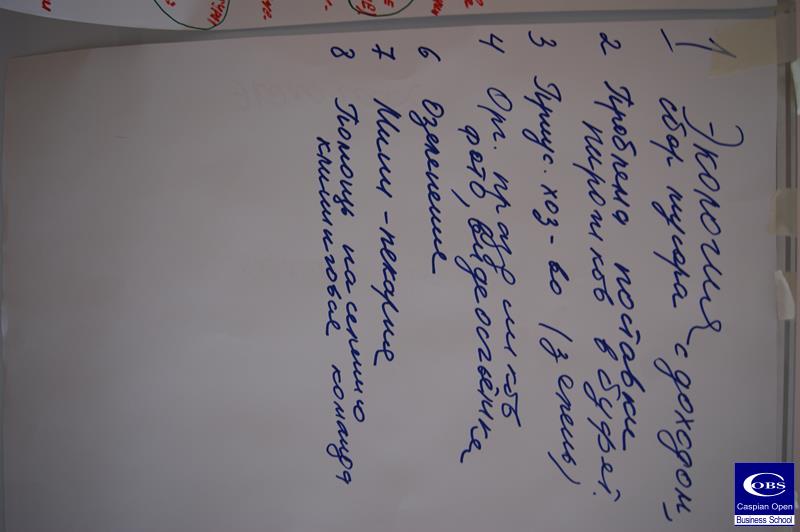 Экология
1 сбор мусора с доходом
2 Проблема поставки
пирожков в буфет.
3 Приус. хоз-во (зелень)
4 Орг. праздников
фото, видеосъёмка
6 Озеленение
7 Мини-пекарня
8 Помощь населению
клининговая команда
COBS
Caspian Open
Business School